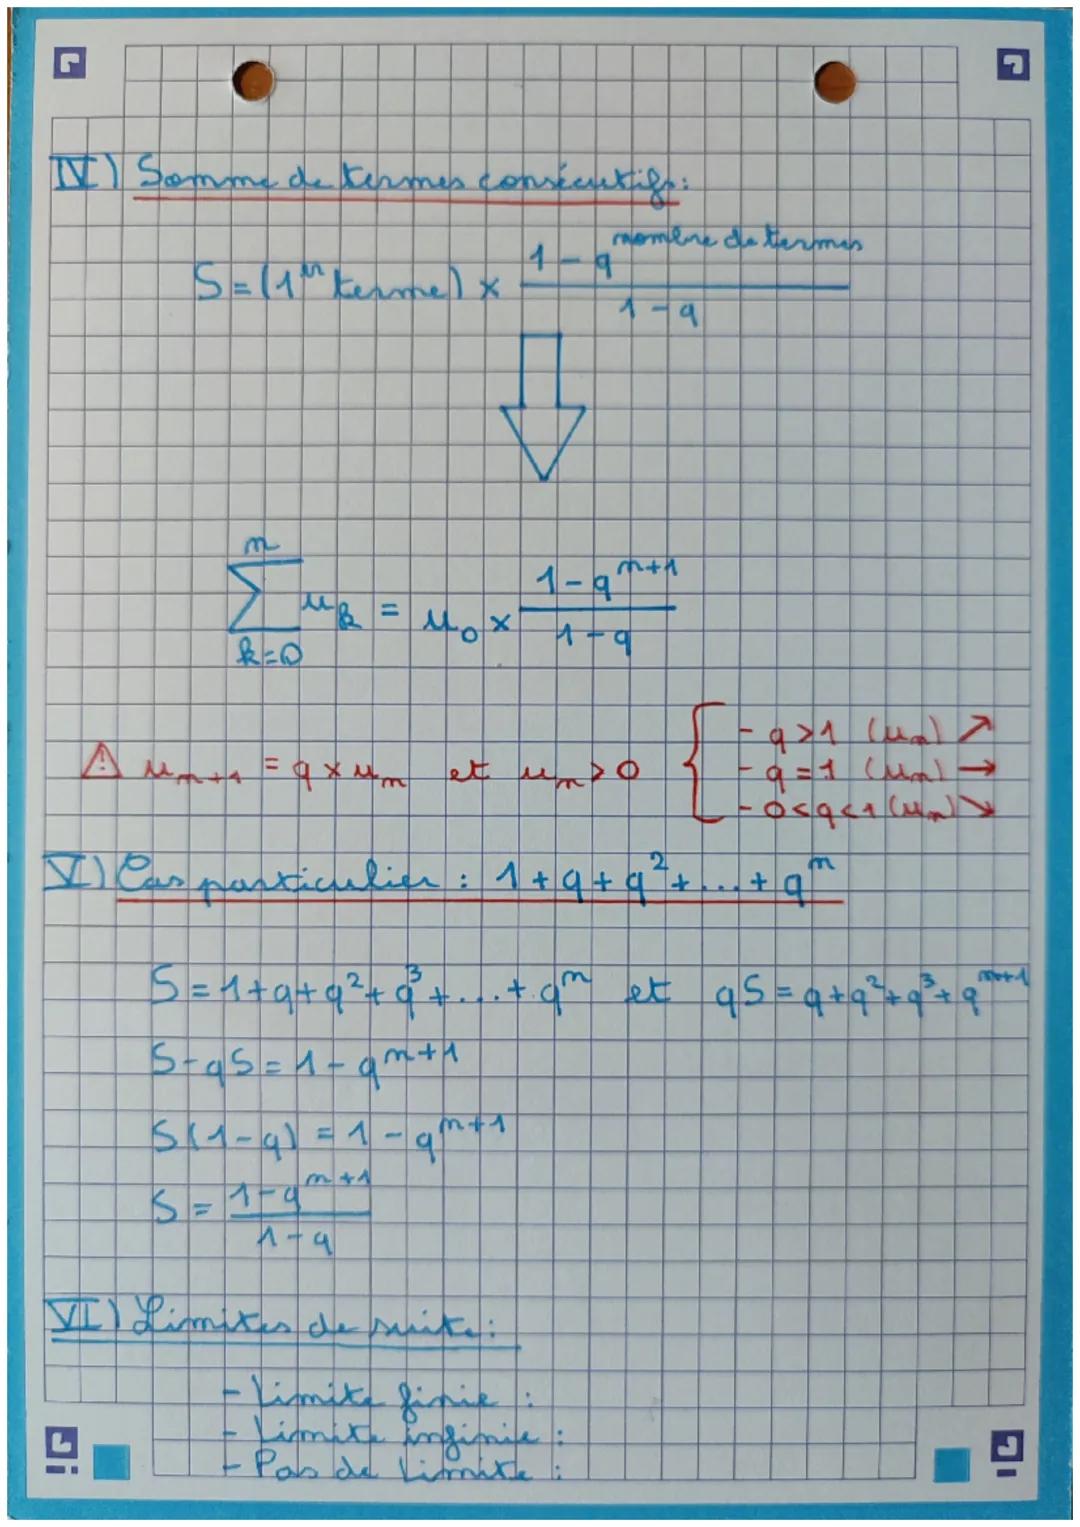 IV) Somme de termes consécutifs:
S = (1er terme) × (1 - q^nombre de termes) / (1 - q)
n
∑ u_k = u_0 × (1 - q^(n+1)) / (1 - q)
k=0
⚠ u_(n+1) = q × u_n et u_n > 0 { - q > 1 (u_n) ↗
- q = 1 (u_n) →
- 0 < q < 1 (u_n) ↘
V) Cas particulier : 1 + q + q² + ... + q^n
S = 1 + q + q² + q³ + ... + q^n et qS = q + q² + q³ + q^(n+1)
S - qS = 1 - q^(n+1)
S(1 - q) = 1 - q^(n+1)
S = (1 - q^(n+1)) / (1 - q)
VI) Limites de suite :
- Limite finie :
- Limite infinie :
- Pas de Limite :